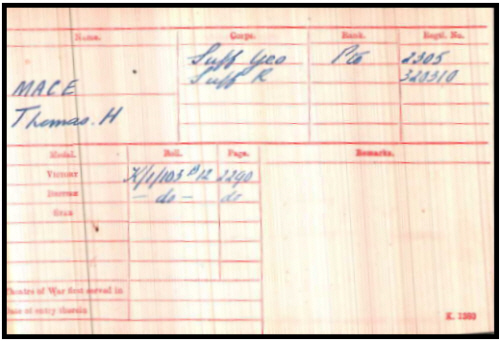 Name. Corps. Rank. Regtl. No.
MACE Suff Yeo Pte 2305
Thomas. H Suff R 320310
Medal. Roll. Page. Remarks.
VICTORY K/1/103 B12 2290
BRITISH – do – do
STAR
Theatre of War first served in
Date of entry therein
K. 1380